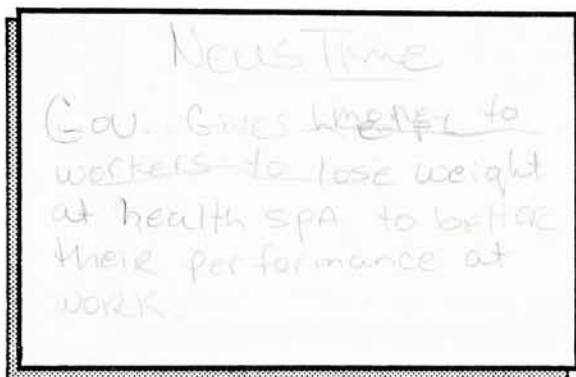 News Time
Gov. Gives money to
workers to lose weight
at health spa to better
their performance at
work